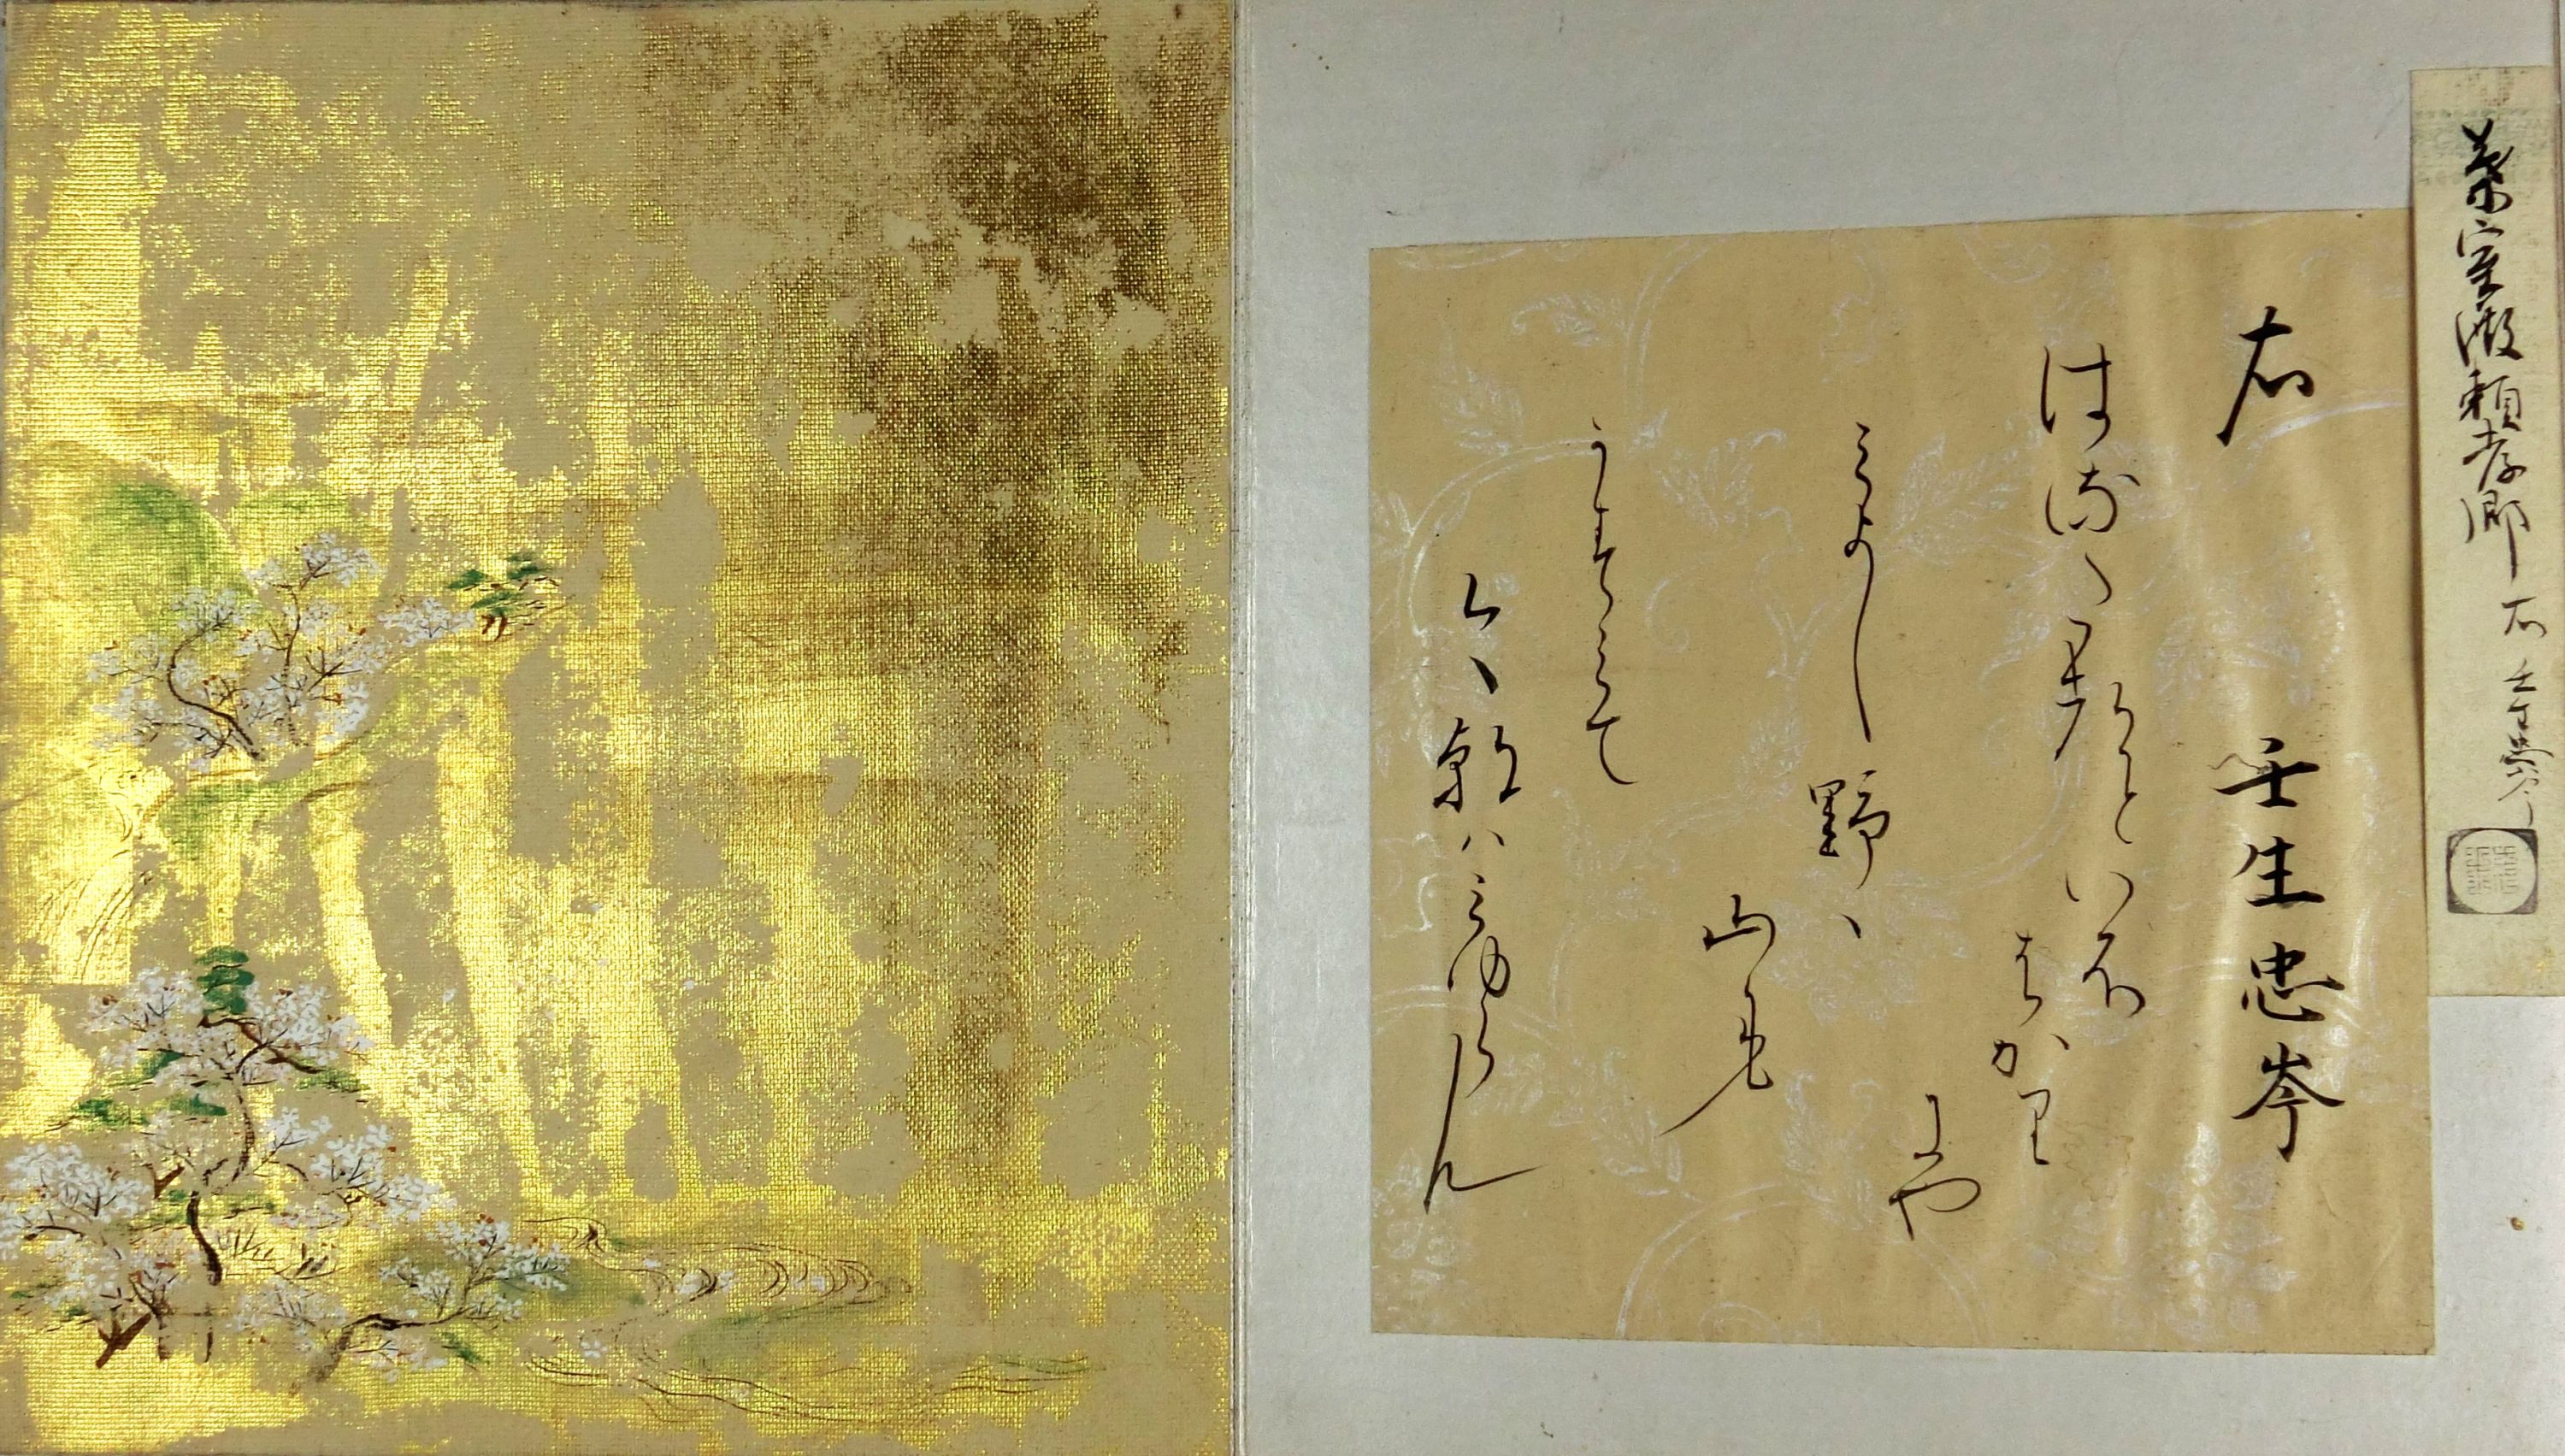 葉室頼孝卿 右 壬生忠岑
右 壬生忠岑
はるたつといふ
はかり
にや
みよし野ゝ
山も
かすみて
今朝ハみゆらん